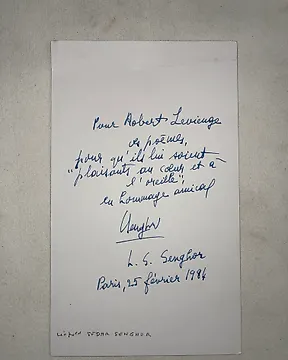 Pour Robert Levienge
ces poèmes,
pour qu'ils lui soient
"plaisants au cœur et à
l'oreille",
en hommage amical
Senghor
L. S. Senghor
Paris, 25 février 1984
Léopold SEDAR SENGHOR